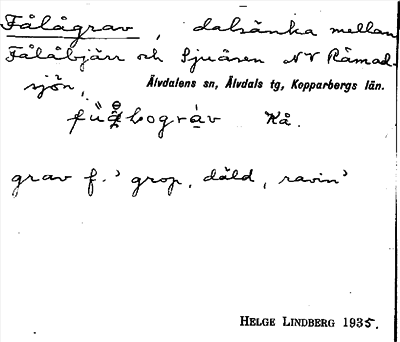 Fålågrav, dalsänka mellan
Fålåbjärr och Sjuåren NV Råmad-
sjön, Älvdalens sn, Älvdals tg, Kopparbergs län.
Kå.
grav f. 'grop, däld, ravin'
HELGE LINDBERG 1935.